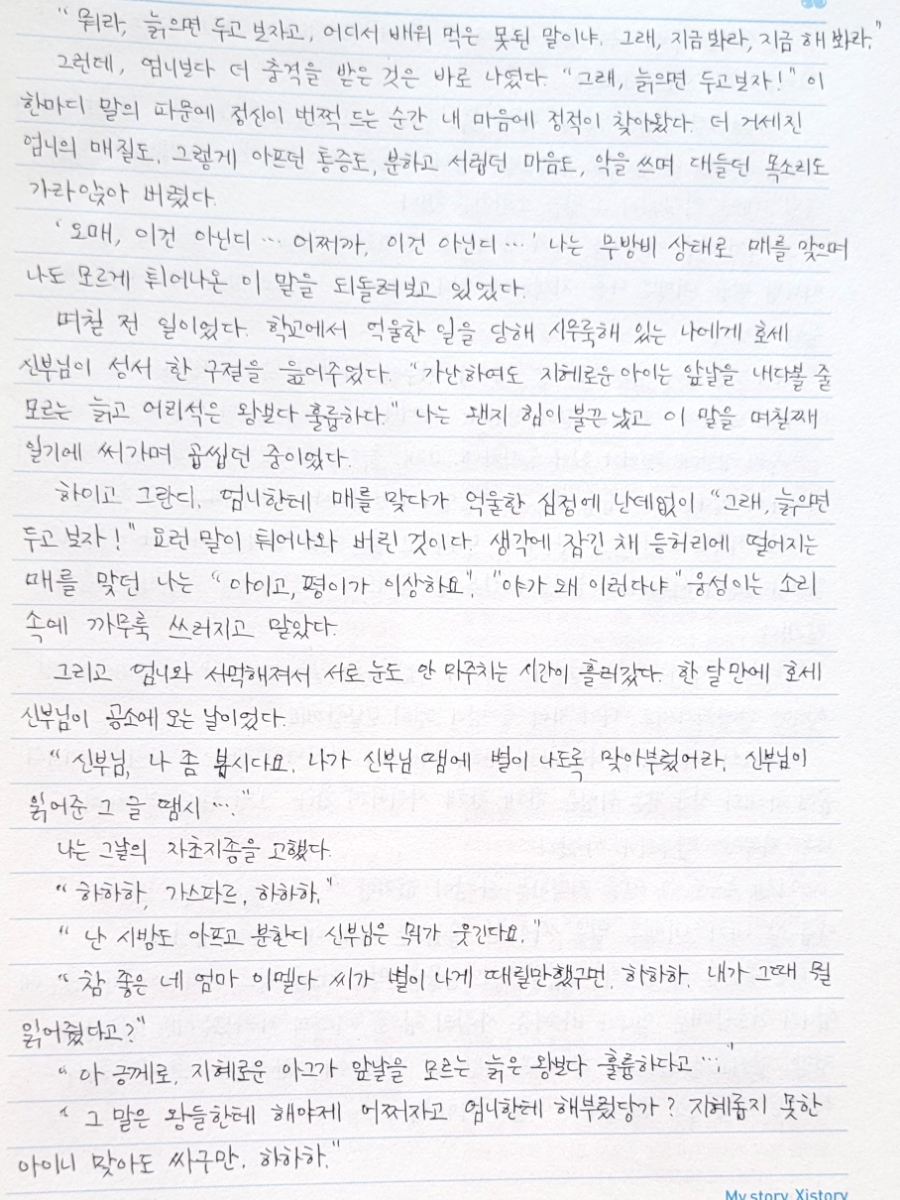 "뭐라, 늙으면 두고 보자고, 어디서 배워 먹은 못된 말이냐. 그래, 지금 봐라, 지금 해 봐라."
그런데, 엄니보다 더 충격을 받은 것은 바로 나였다. "그래, 늙으면 두고보자!" 이
한마디 말의 파문에 정신이 번쩍 드는 순간 내 마음에 정적이 찾아왔다. 더 거세진
엄니의 매질도, 그렇게 아프던 통증도, 분하고 서럽던 마음도, 악을 쓰며 대들던 목소리도
가라앉아 버렸다.
'오매, 이건 아닌디… 어쩌까, 이건 아닌디…' 나는 무방비 상태로 매를 맞으며
나도 모르게 튀어나온 이 말을 되돌려보고 있었다.
며칠 전 일이었다. 학교에서 억울한 일을 당해 시무룩해 있는 나에게 호세
신부님이 성서 한 구절을 읊어주었다. "가난하여도 지혜로운 아이는 앞날을 내다볼 줄
모르는 늙고 어리석은 왕보다 훌륭하다." 나는 왠지 힘이 불끈 났고 이 말을 며칠째
일기에 써가며 곱씹던 중이었다.
하이고 그란디, 엄니한테 매를 맞다가 억울한 심정에 난데없이 "그래, 늙으면
두고 보자!" 요런 말이 튀어나와 버린 것이다. 생각에 잠긴 채 등허리에 떨어지는
매를 맞던 나는 "아이고, 평이가 이상하요", "야가 왜 이런다냐" 웅성이는 소리
속에 까무룩 쓰러지고 말았다.
그리고 엄니와 서먹해져서 서로 눈도 안 마주치는 시간이 흘러갔다. 한 달 만에 호세
신부님이 공소에 오는 날이었다.
"신부님, 나 좀 봅시다요. 나가 신부님 땜에 별이 나도록 맞아부렀어라. 신부님이
읽어준 그 글 땜시…"
나는 그날의 자초지종을 고했다.
"하하하, 가스파르, 하하하."
"난 시방도 아프고 분한디 신부님은 뭐가 웃긴다요."
"참 좋은 네 엄마 이멜다 씨가 별이 나게 때릴만했구먼. 하하하. 내가 그때 뭘
읽어줬다고?"
"아 긍께로, 지혜로운 아그가 앞날을 모르는 늙은 왕보다 훌륭하다고…"
"그 말은 왕들한테 해야제 어쩌자고 엄니한테 해부렀당가? 지혜롭지 못한
아이니 맞아도 싸구만. 하하하."
My story, Xistory